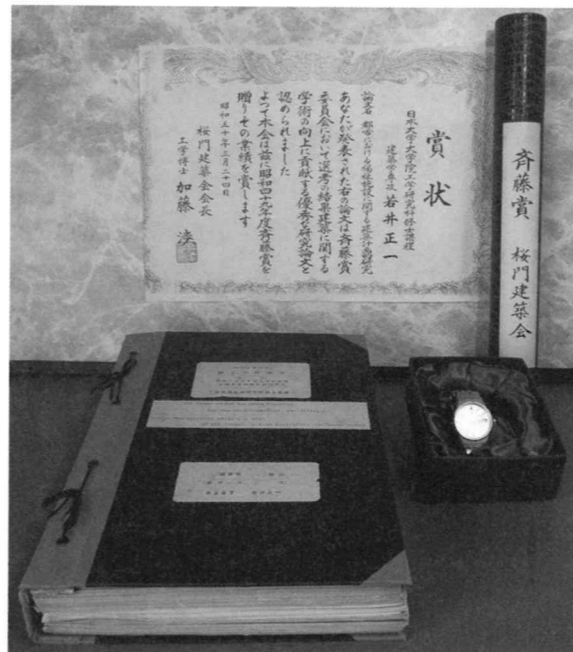 賞状
日本大学大学院工学研究科修士課程
建築学専攻 若井正一
論文名 都市における福祉施設に関する建築計画的研究
あなたが発表された右の論文は斉藤賞
委員会において選考の結果建築に関する
学術の向上に貢献する優秀な研究論文と
認められました
よって本会は茲に昭和四十九年度斉藤賞を
贈りその業績を賞します
昭和五十年三月二十四日
桜門建築会会長
工学博士 加藤 渉
斉藤賞 桜門建築会